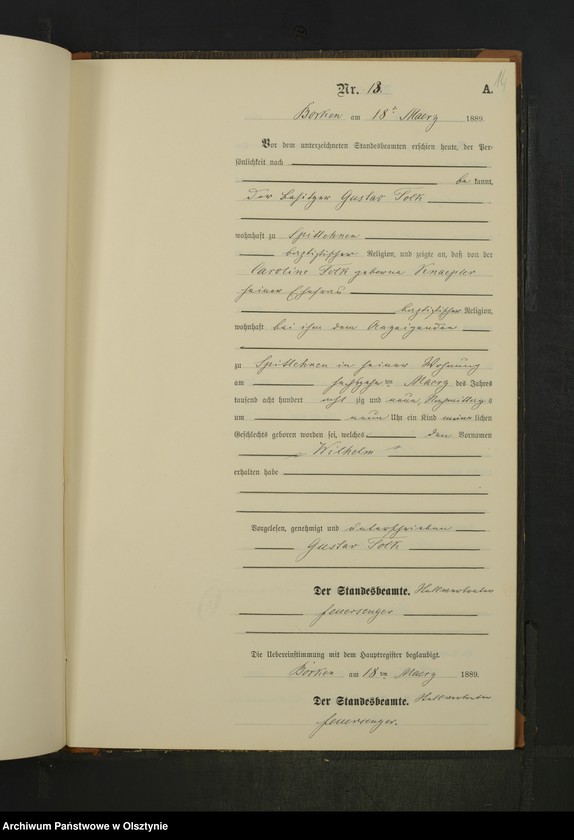 14
Nr. 13. A.
Borken am 18t Maerz 1889.
Vor dem unterzeichneten Standesbeamten erschien heute, der Per-
sönlichkeit nach
be kannt,
der Besitzer Gustav Tolk
wohnhaft zu Spittehnen
baptistischer Religion, und zeigte an, daß von der
Caroline Tolk geborne Knaepler
seiner Ehefrau
baptistischer Religion,
wohnhaft bei ihm dem Anzeigenden
zu Spittehnen in seiner Wohnung
am sechszehnten Maerz des Jahres
tausend acht hundert acht zig und neun, Nachmittags
um neun Uhr ein Kind männlichen
Geschlechts geboren worden sei, welches den Vornamen
Wilhelm
erhalten habe
Vorgelesen, genehmigt und unterschrieben
Gustav Tolk
Der Standesbeamte.
Feuersenger
Die Uebereinstimmung mit dem Hauptregister beglaubigt.
Borken am 18ten Maerz 1889.
Der Standesbeamte.
Feuersenger.
Archiwum Państwowe w Olsztynie